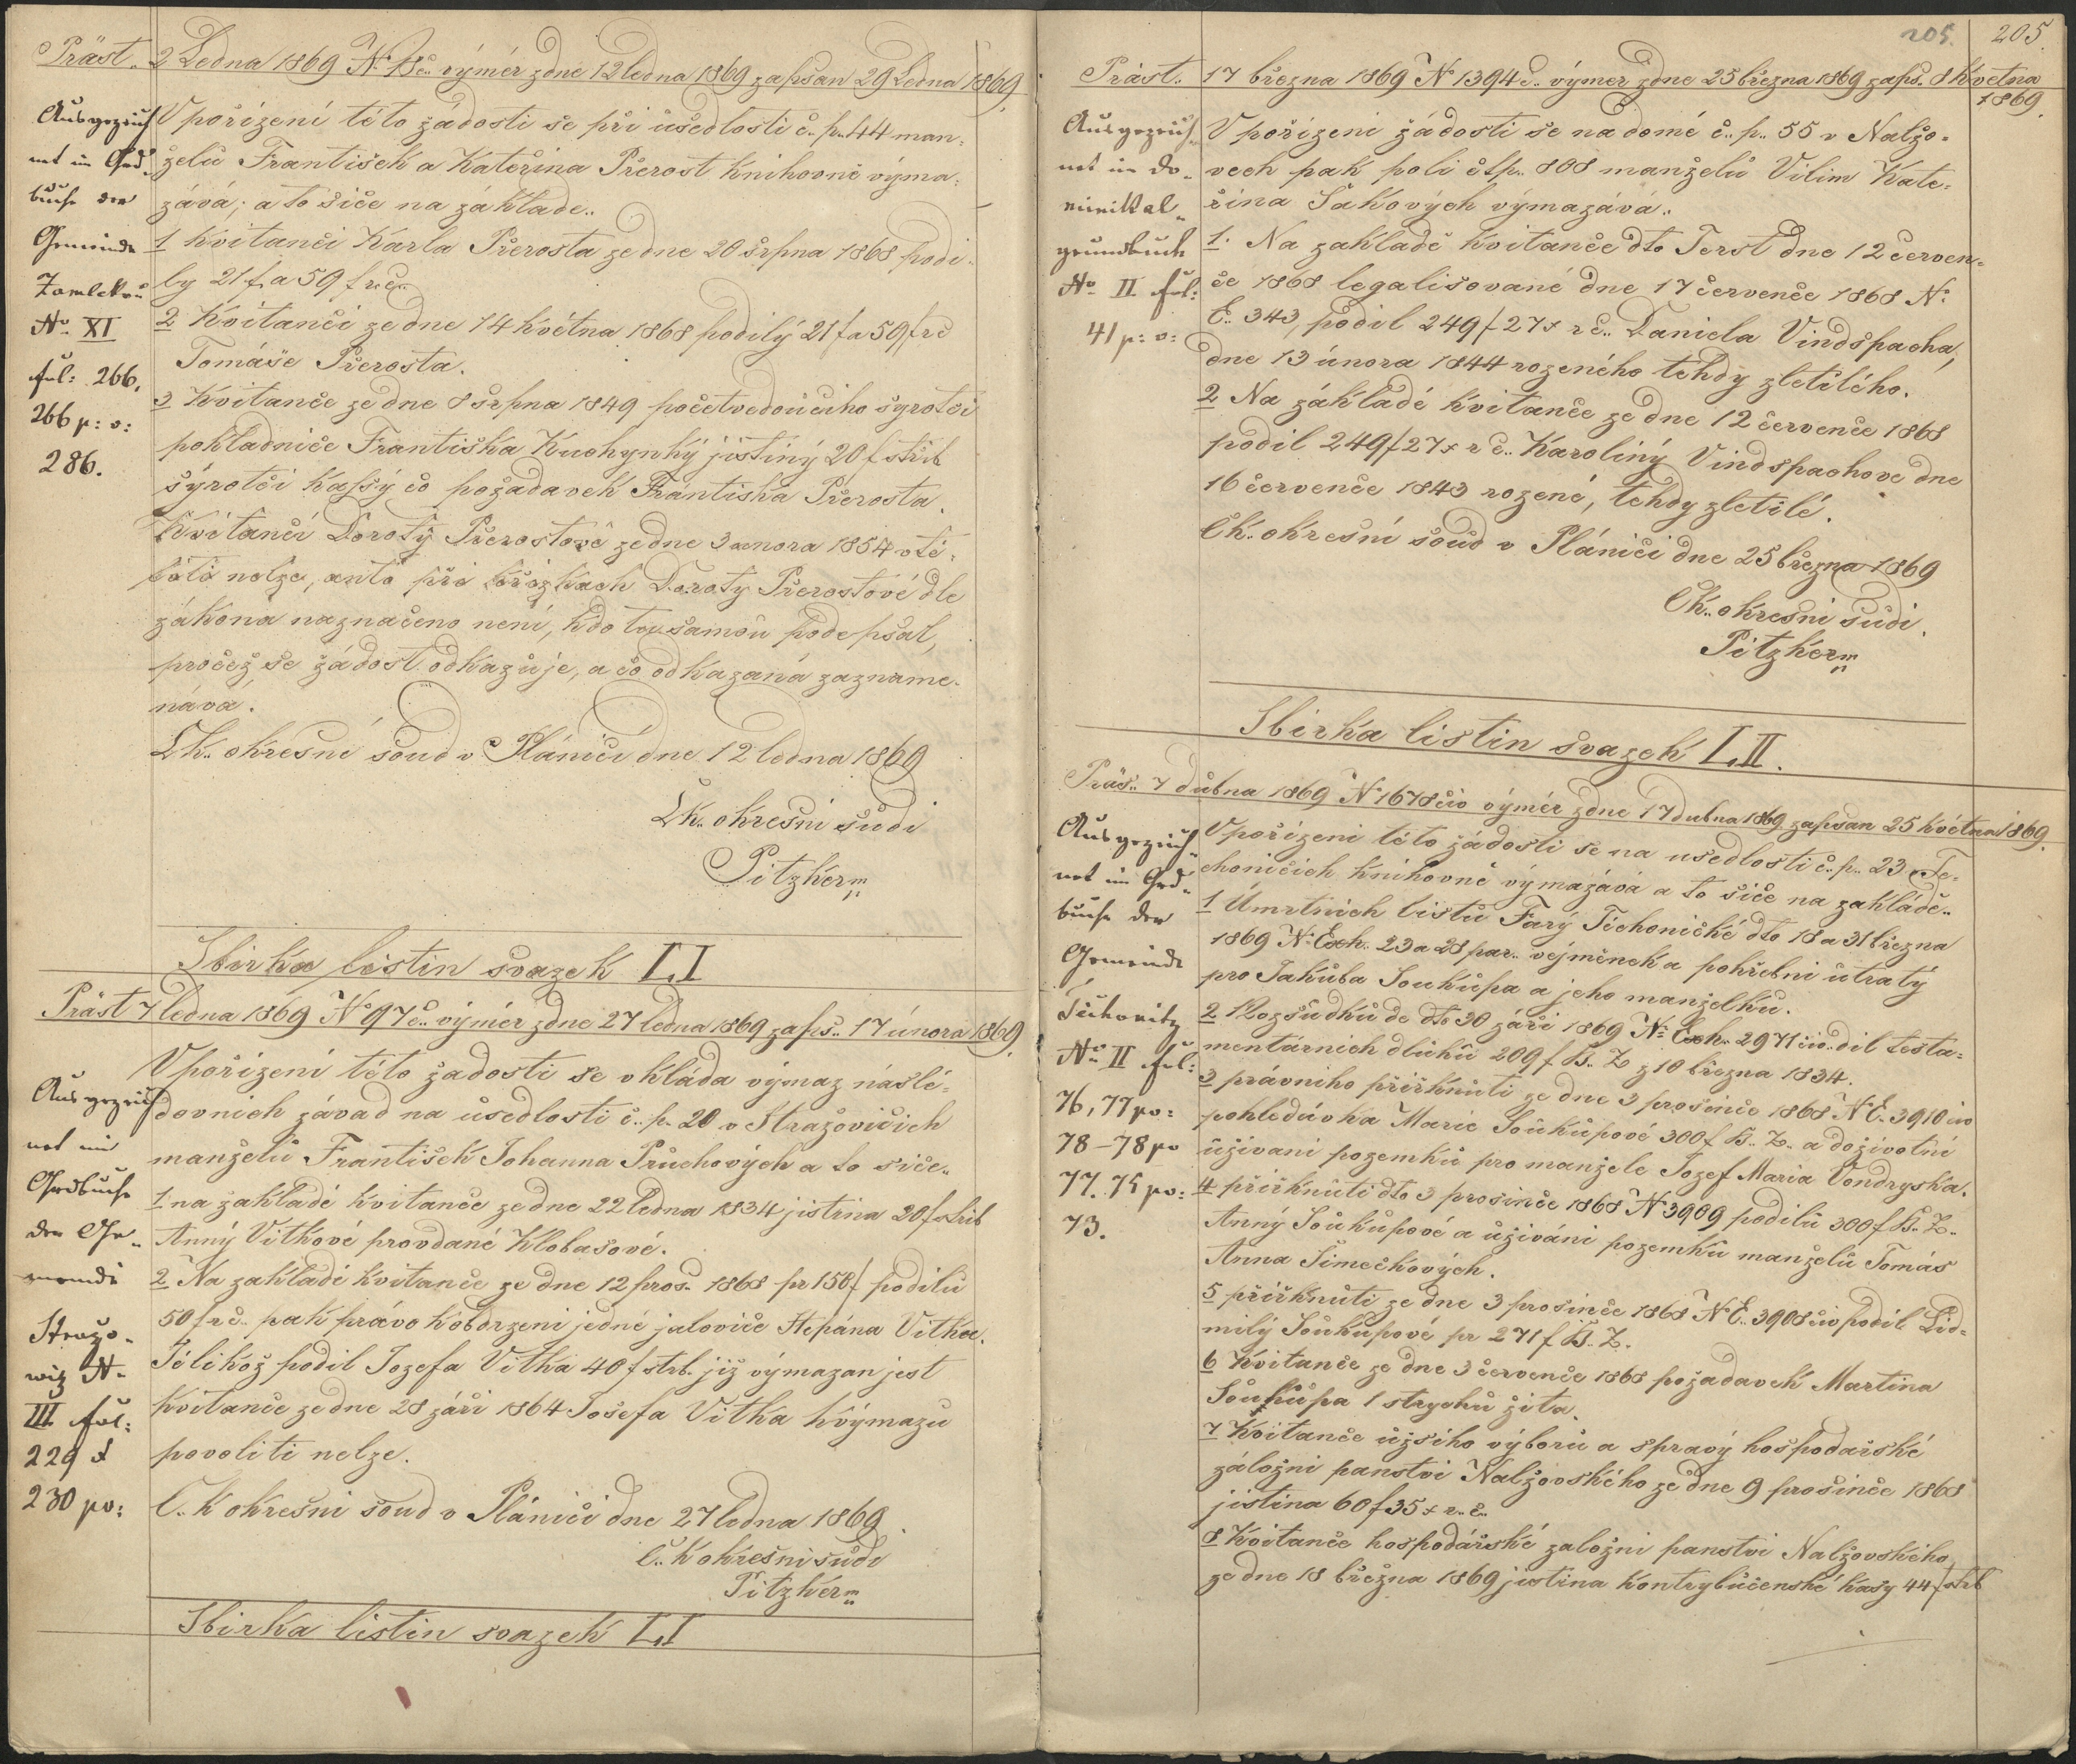 Präst. 2 Ledna 1869 N. 18č. výměr zdne 12 ledna 1869 zapsan 29 Ledna 1869.
Ausgezeich
net im Grd„
buche der
Gemeinde
Zamlekau
No XI
fol: 266.
266 p: v:
286.
V pořízení této žádosti se při ùsedlosti č. p. 44 man„
želù František a Kateřina Přerost knihovně výma„
zává; a to siče na základe..
1 Kvitanči Karla Přerosta ze dne 20 srpna 1868 podi„
ly 21 f a 59 f r.č.
2 Kvitanči ze dne 14 května 1868 podilý 21 f a 59 f rč
Tomáše Přerosta.
3 Kvitanče ze dne 8 srpna 1849 početvedoučiho syrotči
pokladniče Františka Kuchynký jistiný 20 f střib
sýrotči kassý čo požadavek Františka Přerosta.
Kvitanči Dorotý Přerostové ze dne 3 unora 1854 vtě„
liti nelze, anto při křížkach Doroty Přerostové dle
zákona naznačeno neni, kdo tou samoù podepsal,
pročež se žádost odkazuje, a čo odkazaná zazname„
nává.
Čk. okresné soud v Plániči dne 12 ledna 1869
Čk. okresni sùdi
Pitzker m
Sbirka listin svazek L.I
Präst 7 ledna 1869 No 97č. výměr zdne 27 ledna 1869 zaps.. 17 února 1869.
Ausgezeich
net im
Grdbuche
der Ge„
meinde
Stražo„
witz N.
III fol:
229 &
230 po:
V pořizení této žadosti se vkláda výmaz náslé„
dovnich závad na ùsedlosti č. p. 20 v Stražovičich
manželù František Johanna Průchových a to siče„
1. na zakladé kvitanče ze dne 22 ledna 1834 jistina 20 f střib
Anný Vitkové provdané Klobasové.
2 Na zakladé kvitanče ze dne 12 pros. 1868 pr 158 f podilù
50 f rč. pak právo k obdrzeni jedné jaloviče Štepána Vitka.
Jélikož podil Jozefa Vitka 40 f strb. již výmazan jest
kvitanče ze dne 28 záři 1864 Josefa Vitka k výmazu
povoliti nelze.
Č. K okresni soud v Plániči dne 27 ledna 1869.
Č. K okresni sùdi
Pitzker m
Sbirka listin svazek L.I
205. 205.
Präst.. 17 března 1869 No 1394 č.. výměr zdne 25 března 1869 zaps. 8 května
1869.
Ausgezeich„
net im Do„
minikal„
grundbuch
No II fol:
41 p: v:
V pořizeni žádosti se na domé č. p. 55 v Nalžo„
vech pak poli čtp. 808 manželù Vilim Kate„
řina Šakových výmazává..
1. Na zakladě kvitanče dto Terst dne 12 červen„
če 1868 legalisované dne 17 července 1868 No
E. 343, podil 249 f 27 x r č.. Daniela Vindspacha,
dne 13 února 1844 rozeného tehdy zletilého.
2 Na základé kvitanče ze dne 12 července 1868
podil 249 f 27 x r č.. Karoliný Vindspachove dne
16 července 1843 rozené, tehdy zletilé.
Čk. okresní soùd v Plániči dne 25 března 1869
Čk.. okresni sùdi.
Pitzker m
Sbirka listin svazek L.II.
Präs.. 7 dubna 1869 N 1678 čio výměr zdne 17 dubna 1869 zapsan 25 května 1869.
Ausgezeich„
net im Grd„
buche der
Gemeinde
Tiechonitz
No II fol:
76, 77 po:
78 – 78 po
77. 75 po:
73.
V pořizeni této žádosti se na usedlosti č. p.. 23 v Te„
choničich knihovné výmazává a to siče na zakládě..
1 Úmrtnich listù Farý Těchoničké dto 18 a 31 března
1869 No Exh. 23 a 28 par.. vejměnek a pohřebni ùtratý
pro Jakùba Soukùpa a jeho manželkù.
2 Rozsùdkù de dto 30 září 1869 No Exh. 2971 čio.. dil testa„
mentárnich dluhù 209 f B.. Z z 10 března 1834.
3 právniho přiřknùti ze dne 3 prosinče 1868 N E. 3910 čio
pohledávka Marie Soùkùpové 300 f B.. Z.. a doživotni
ùživani pozemkù pro manžele Jozef Maria Vondryska.
4 přiřknùti dto 3 prosinče 1868 N 3909 podilù 300 f B.. Z..
Anný Soùkùpové a ùživáni pozemkù manželù Tomás
Anna Šimečkových.
5 přiřknùti ze dne 3 prosinče 1868 N E.. 3908 čio podil Lid„
milý Soùkùpové pr 271 f B.. Z.
6 Kvitanče ze dne 3 července 1868 požadavek Martina
Soùkùpa 1 strychù žita.
7 Kvitanče ùžsiho výborù a spravý hospodařské
záložni panstvi Nalžovského ze dne 9 prosinče 1868
jistina 60 f 35 x r.. č..
8 Kvitanče hospodářské založni panstvi Nalžovského
ze dne 18 března 1869 jistina kontrybùčenské kasy 44 f strb